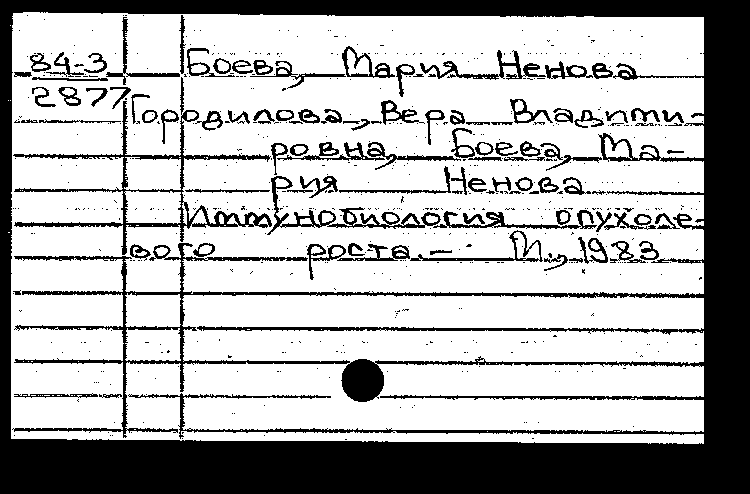 84-3 Боева, Мария Ненова
2877
Городилова, Вера Владими-
ровна, Боева, Ма-
рия Ненова
Иммунобиология опухоле-
вого роста. - М., 1983